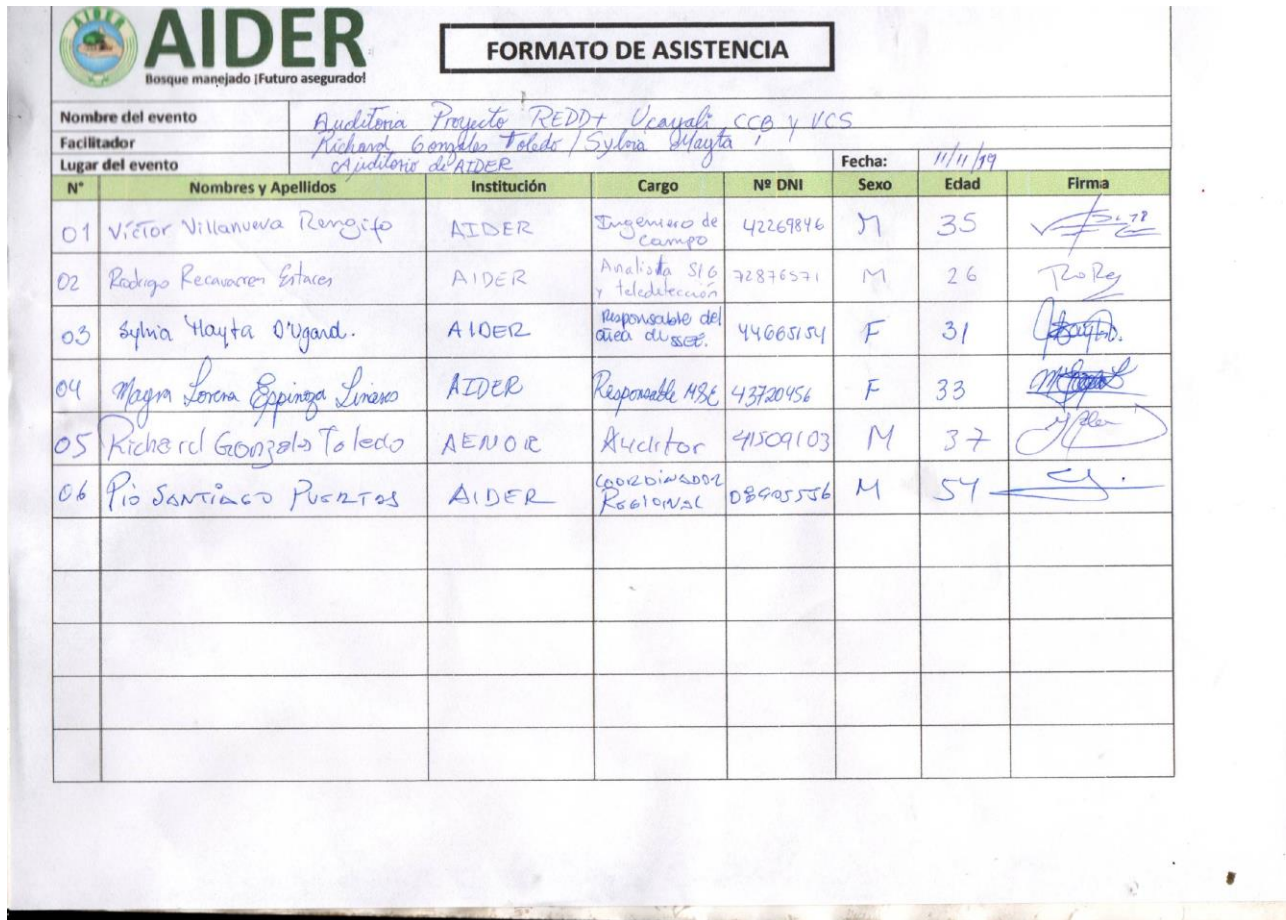 AIDER
Bosque manejado ¡Futuro asegurado!
FORMATO DE ASISTENCIA
Nombre del evento Auditoria Proyecto REDD+ Ucayali CCB y VCS
Facilitador Richard Gonzales Toledo / Sylvia Mayta
Lugar del evento Auditorio de AIDER Fecha: 11/11/19
N° Nombres y Apellidos Institución Cargo Nº DNI Sexo Edad Firma
01 Víctor Villanueva Rengifo AIDER Ingeniero de campo 42269846 M 35
02 Rodrigo Recavarren Estaces AIDER Analista SIG y teledetección 72876571 M 26
03 Sylvia Mayta D'Ugard. AIDER Responsable del área de SSEE. 44665154 F 31
04 Magra Lorena Espinoza Linares AIDER Responsable M&E 43720456 F 33
05 Richard Gonzales Toledo AENOR Auditor 41509103 M 37
06 Pío SANTIAGO PUERTAS AIDER COORDINADOR REGIONAL M 54